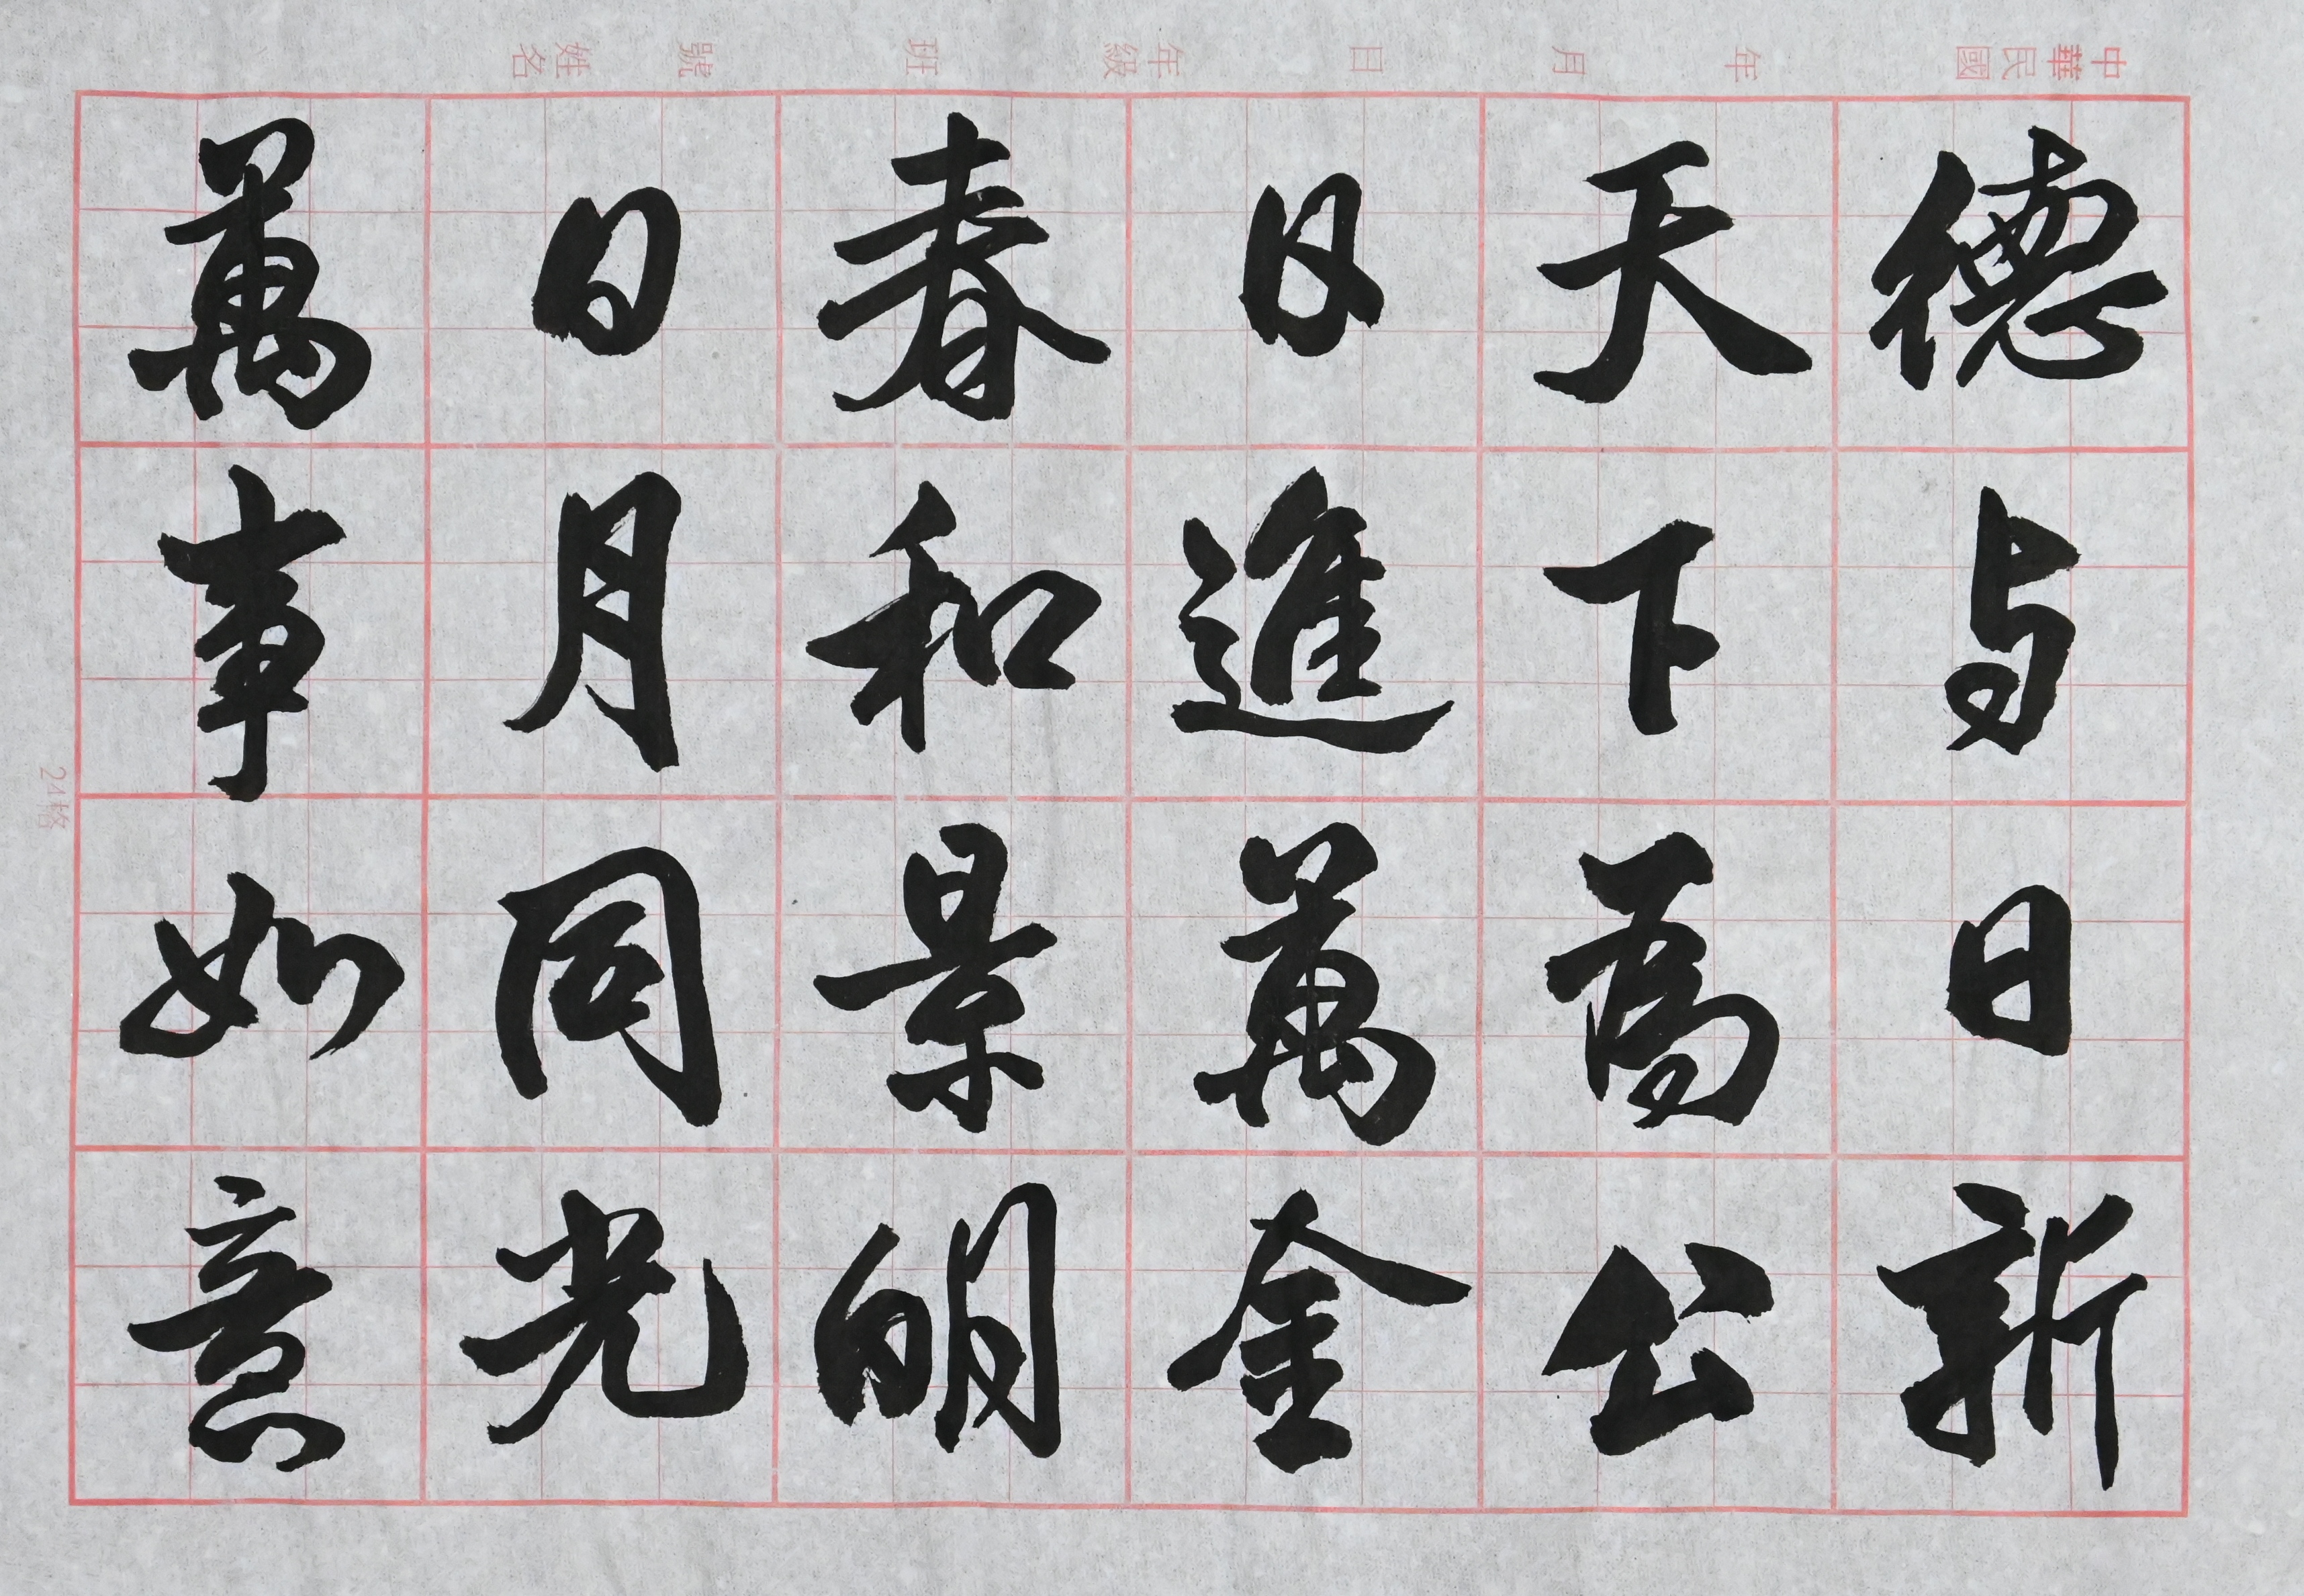 中華民國 年 月 日 年級 班 號 姓名
德与日新
天下為公
日進萬金
春和景明
日月同光
萬事如意
24格